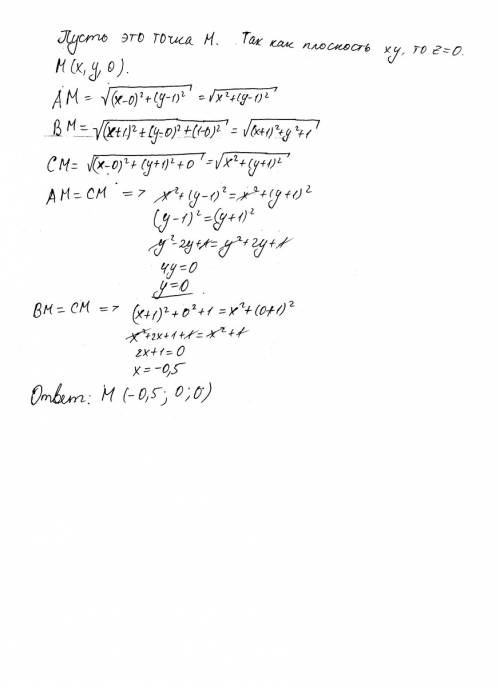 Пусть это точка М. Так как плоскость xy, то z=0.
M(x, y, 0).
AM = √((x-0)²+(y-1)²) = √(x²+(y-1)²)
BM = √((x+1)²+(y-0)²+(1-0)²) = √((x+1)²+y²+1)
CM = √((x-0)²+(y+1)²+0) = √(x²+(y+1)²)
AM = CM => x²+(y-1)²=x²+(y+1)²
(y-1)²=(y+1)²
y²-2y+1=y²+2y+1
4y=0
y=0
BM = CM => (x+1)²+0²+1=x²+(0+1)²
x²+2x+1+1=x²+1
2x+1=0
x=-0,5
Ответ: M(-0,5; 0; 0)